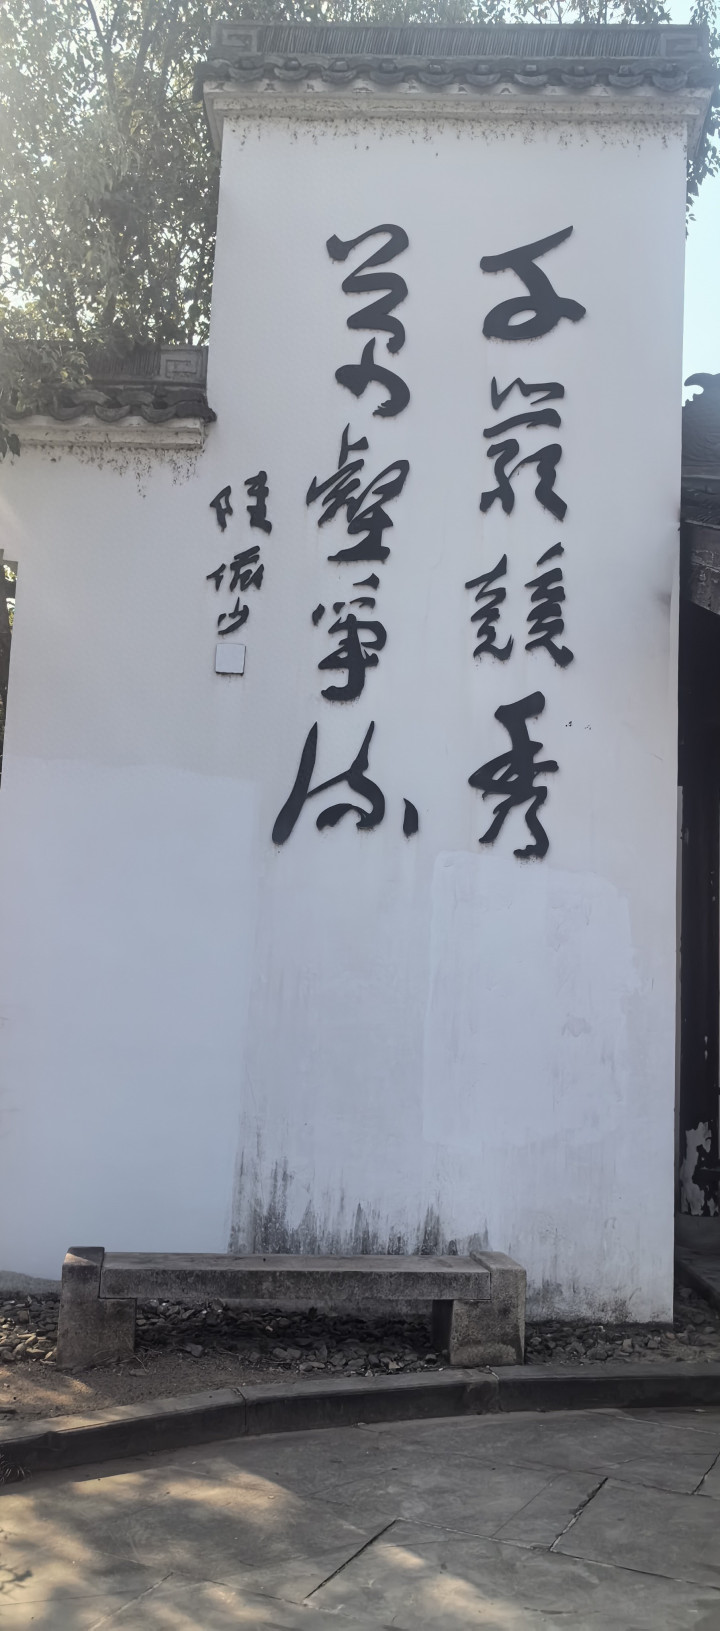 千巖競秀
萬壑爭流
陸儼少